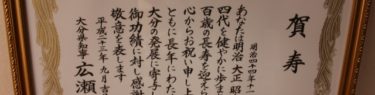 賀寿
明治四十四年十一
あなたは明治大正昭
四代を健やかに歩ま
百歳の長寿を迎え
心からお祝い申し上
ともに長年にわた
大分の発展に寄与
御功績に対し感謝
敬意を表します
平成二十三年九月吉
大分県知事 広瀬